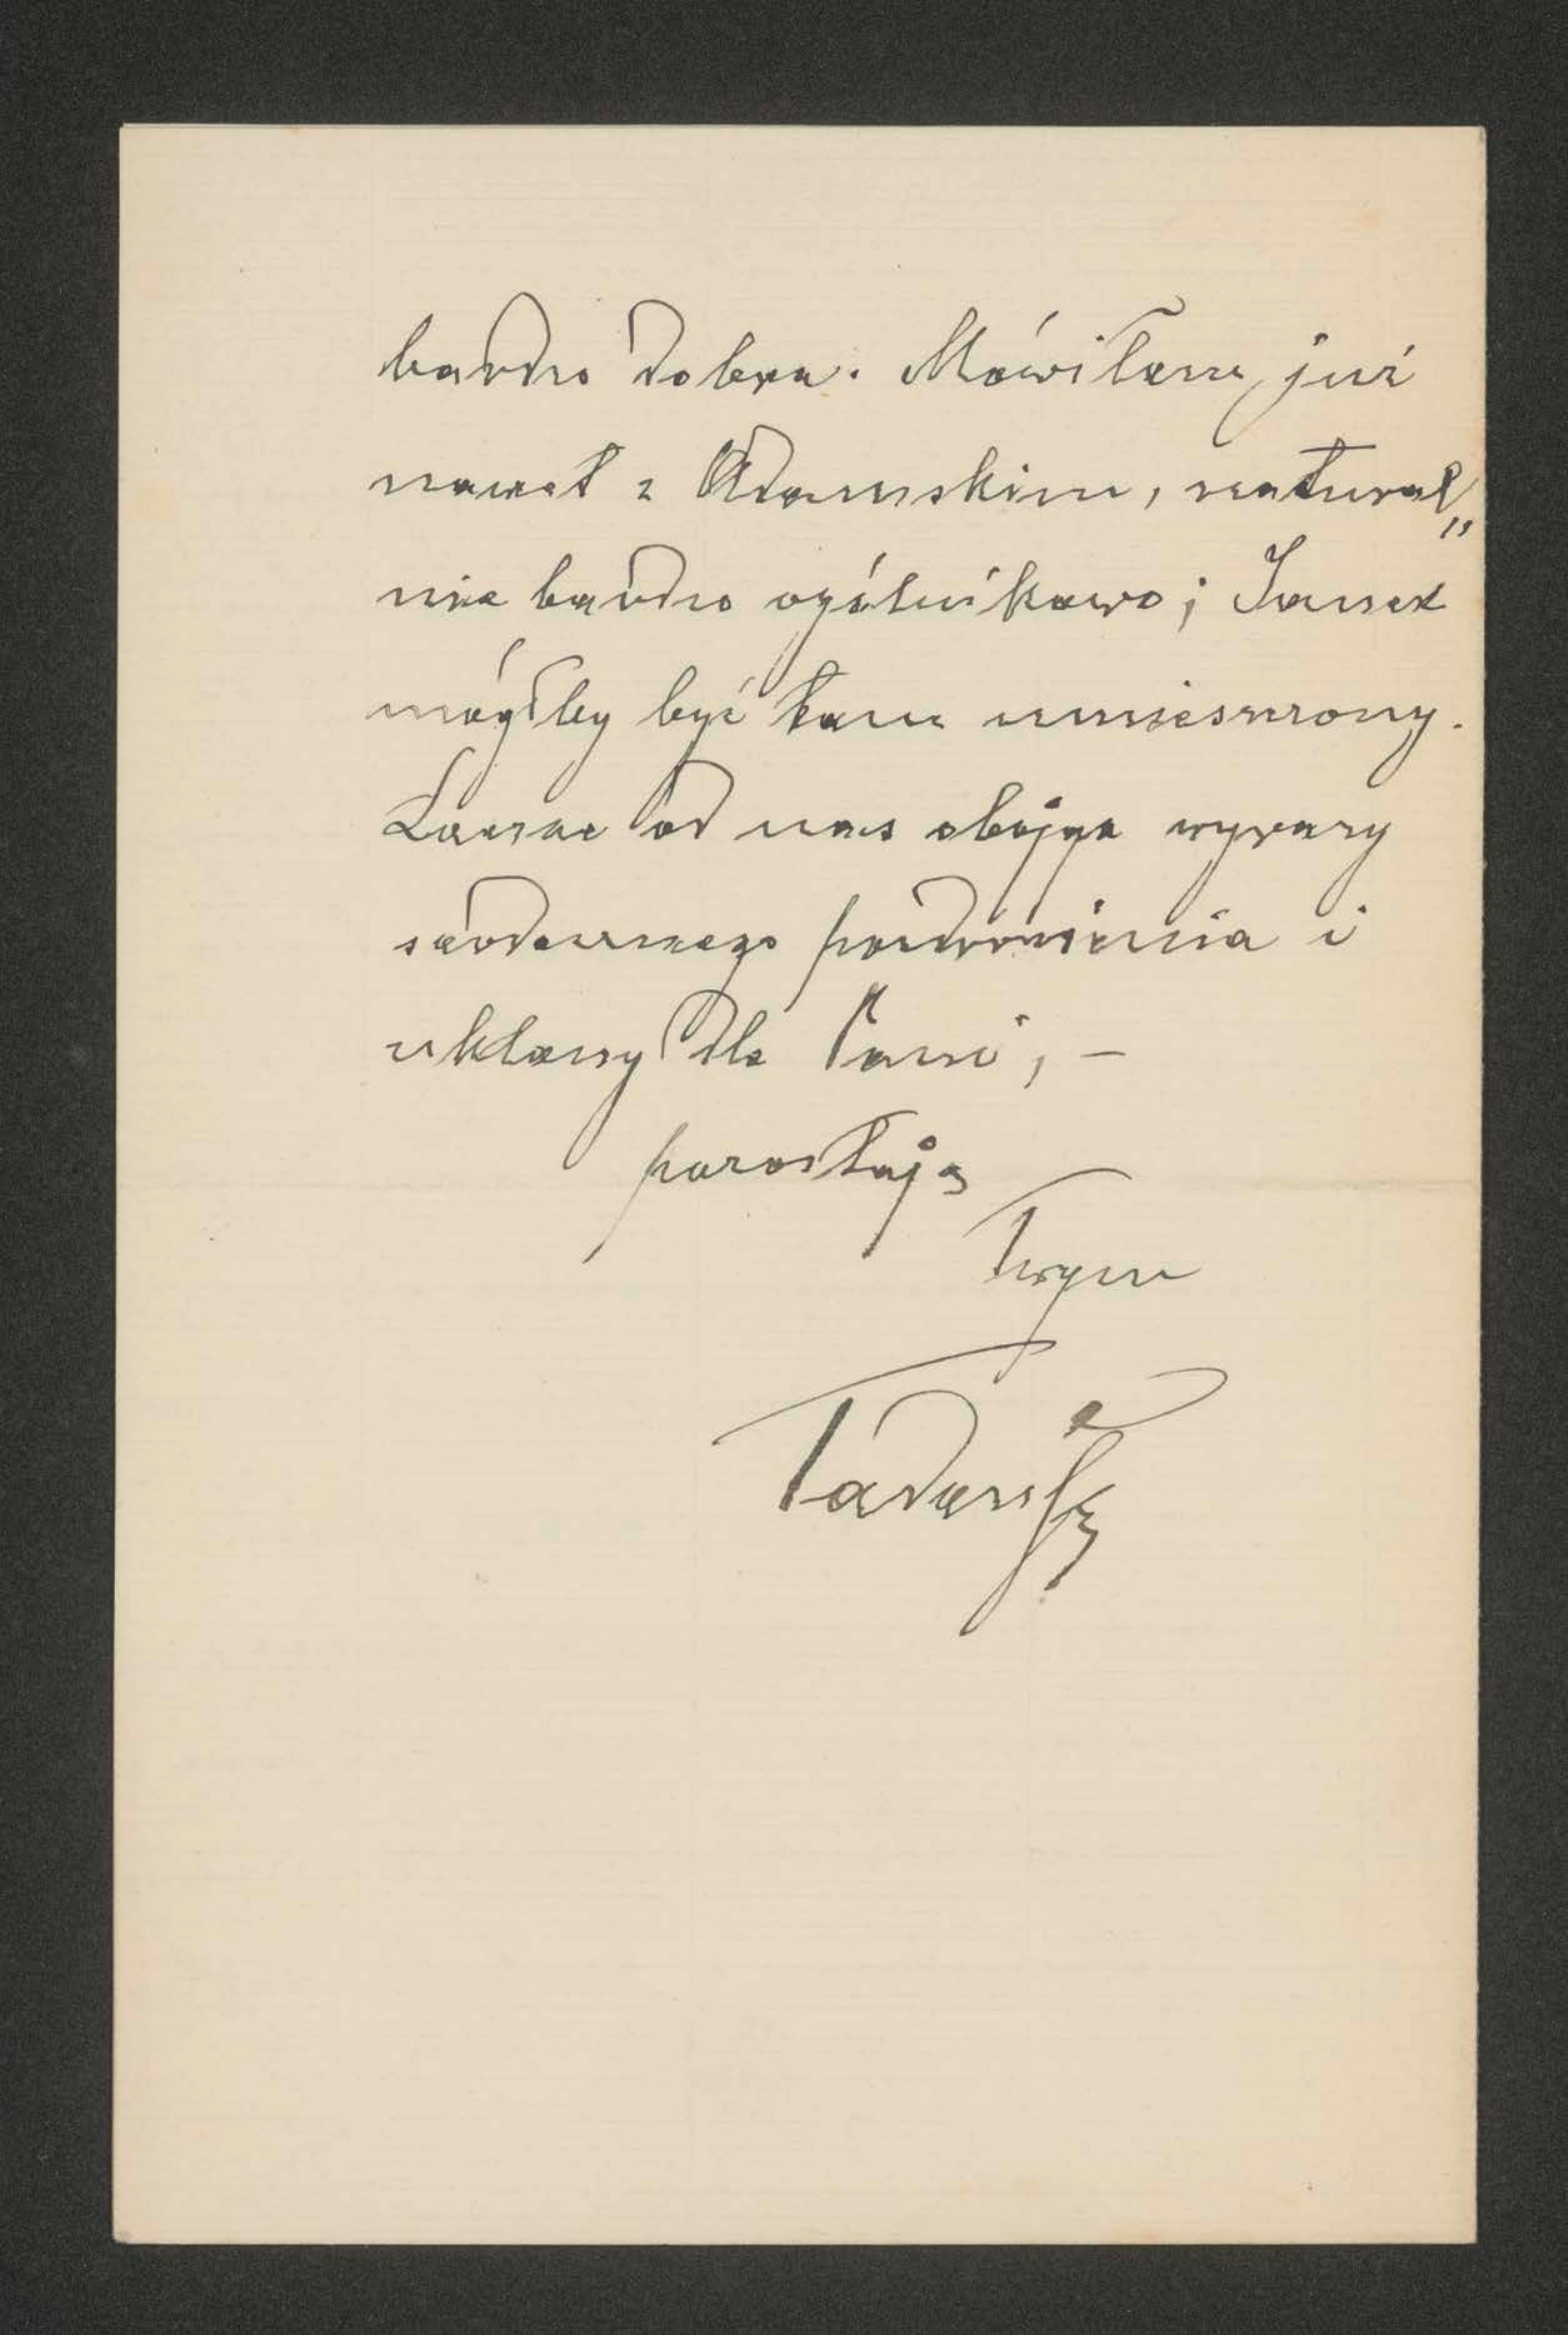 bardzo dobra. Mówiłem już
nawet z Adamskim, natural„
nie bardzo ogólnikowo; Janek
mógłby być tam umieszczony.
Łącząc od nas obojga wyrazy
serdecznego pozdrowienia i
ukłony dla Pani, –
pozostaję
Twym
Tadeusz